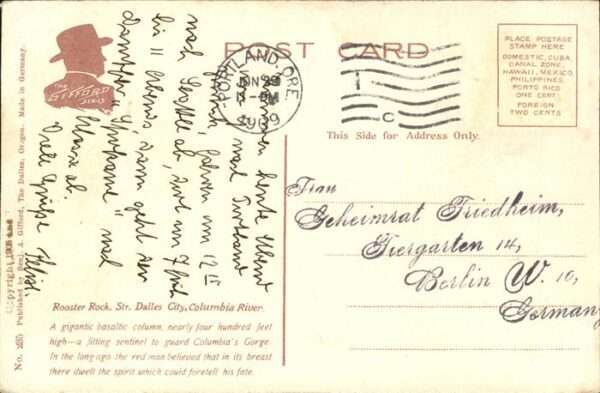 POST CARD
THE GIFFORD SERIES
PORTLAND, ORE.
1909
C
PLACE POSTAGE
STAMP HERE
DOMESTIC, CUBA,
CANAL ZONE,
HAWAII, MEXICO,
PHILIPPINES
PORTO RICO
ONE CENT.
FOREIGN
TWO CENTS
This Side for Address Only.
heute Abend
Portland
um 12 15
nach Seattle ab, dort um 7 früh
bis 11 Abends, dann geht der
Dampfer "Spokane" nach
Alaska ab.
Viele Grüße
Frau
Geheimrat Friedheim,
Tiergarten 14,
Berlin W. 10,
Germany
Rooster Rock, Str. Dalles City, Columbia River.
A gigantic basaltic column, nearly four hundred feet
high—a fitting sentinel to guard Columbia's Gorge.
In the long ago the red man believed that in its breast
there dwelt the spirit which could foretell his fate.
No. 265 Published by Benj. A. Gifford, The Dalles, Oregon. Made in Germany.
Copyright